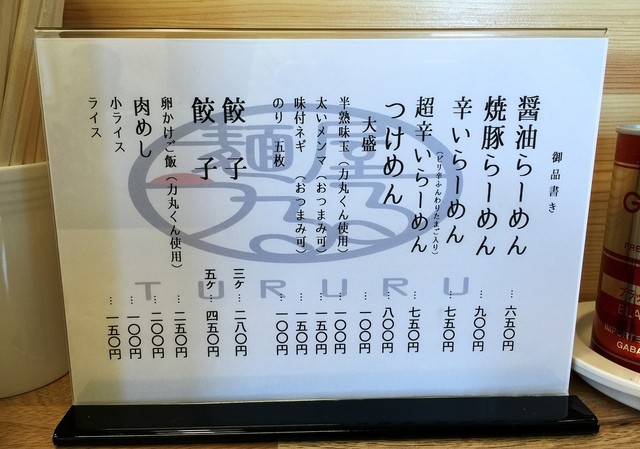 御品書き
醤油らーめん … 六五〇円
焼豚らーめん … 九〇〇円
辛いらーめん … 七五〇円
(ピリ辛ふんわりたまご入り)
超辛いらーめん … 七五〇円
つけめん … 八〇〇円
大盛 … 一〇〇円
半熟味玉(力丸くん使用) … 一〇〇円
太いメンマ(おつまみ可) … 一五〇円
味付ネギ(おつまみ可) … 一五〇円
のり 五枚 … 一〇〇円
餃子 三ヶ … 二八〇円
餃子 五ヶ … 四五〇円
卵かけご飯(力丸くん使用) … 二五〇円
肉めし … 二〇〇円
小ライス … 一〇〇円
ライス … 一五〇円
麺屋
つるる
TURURU
GABA